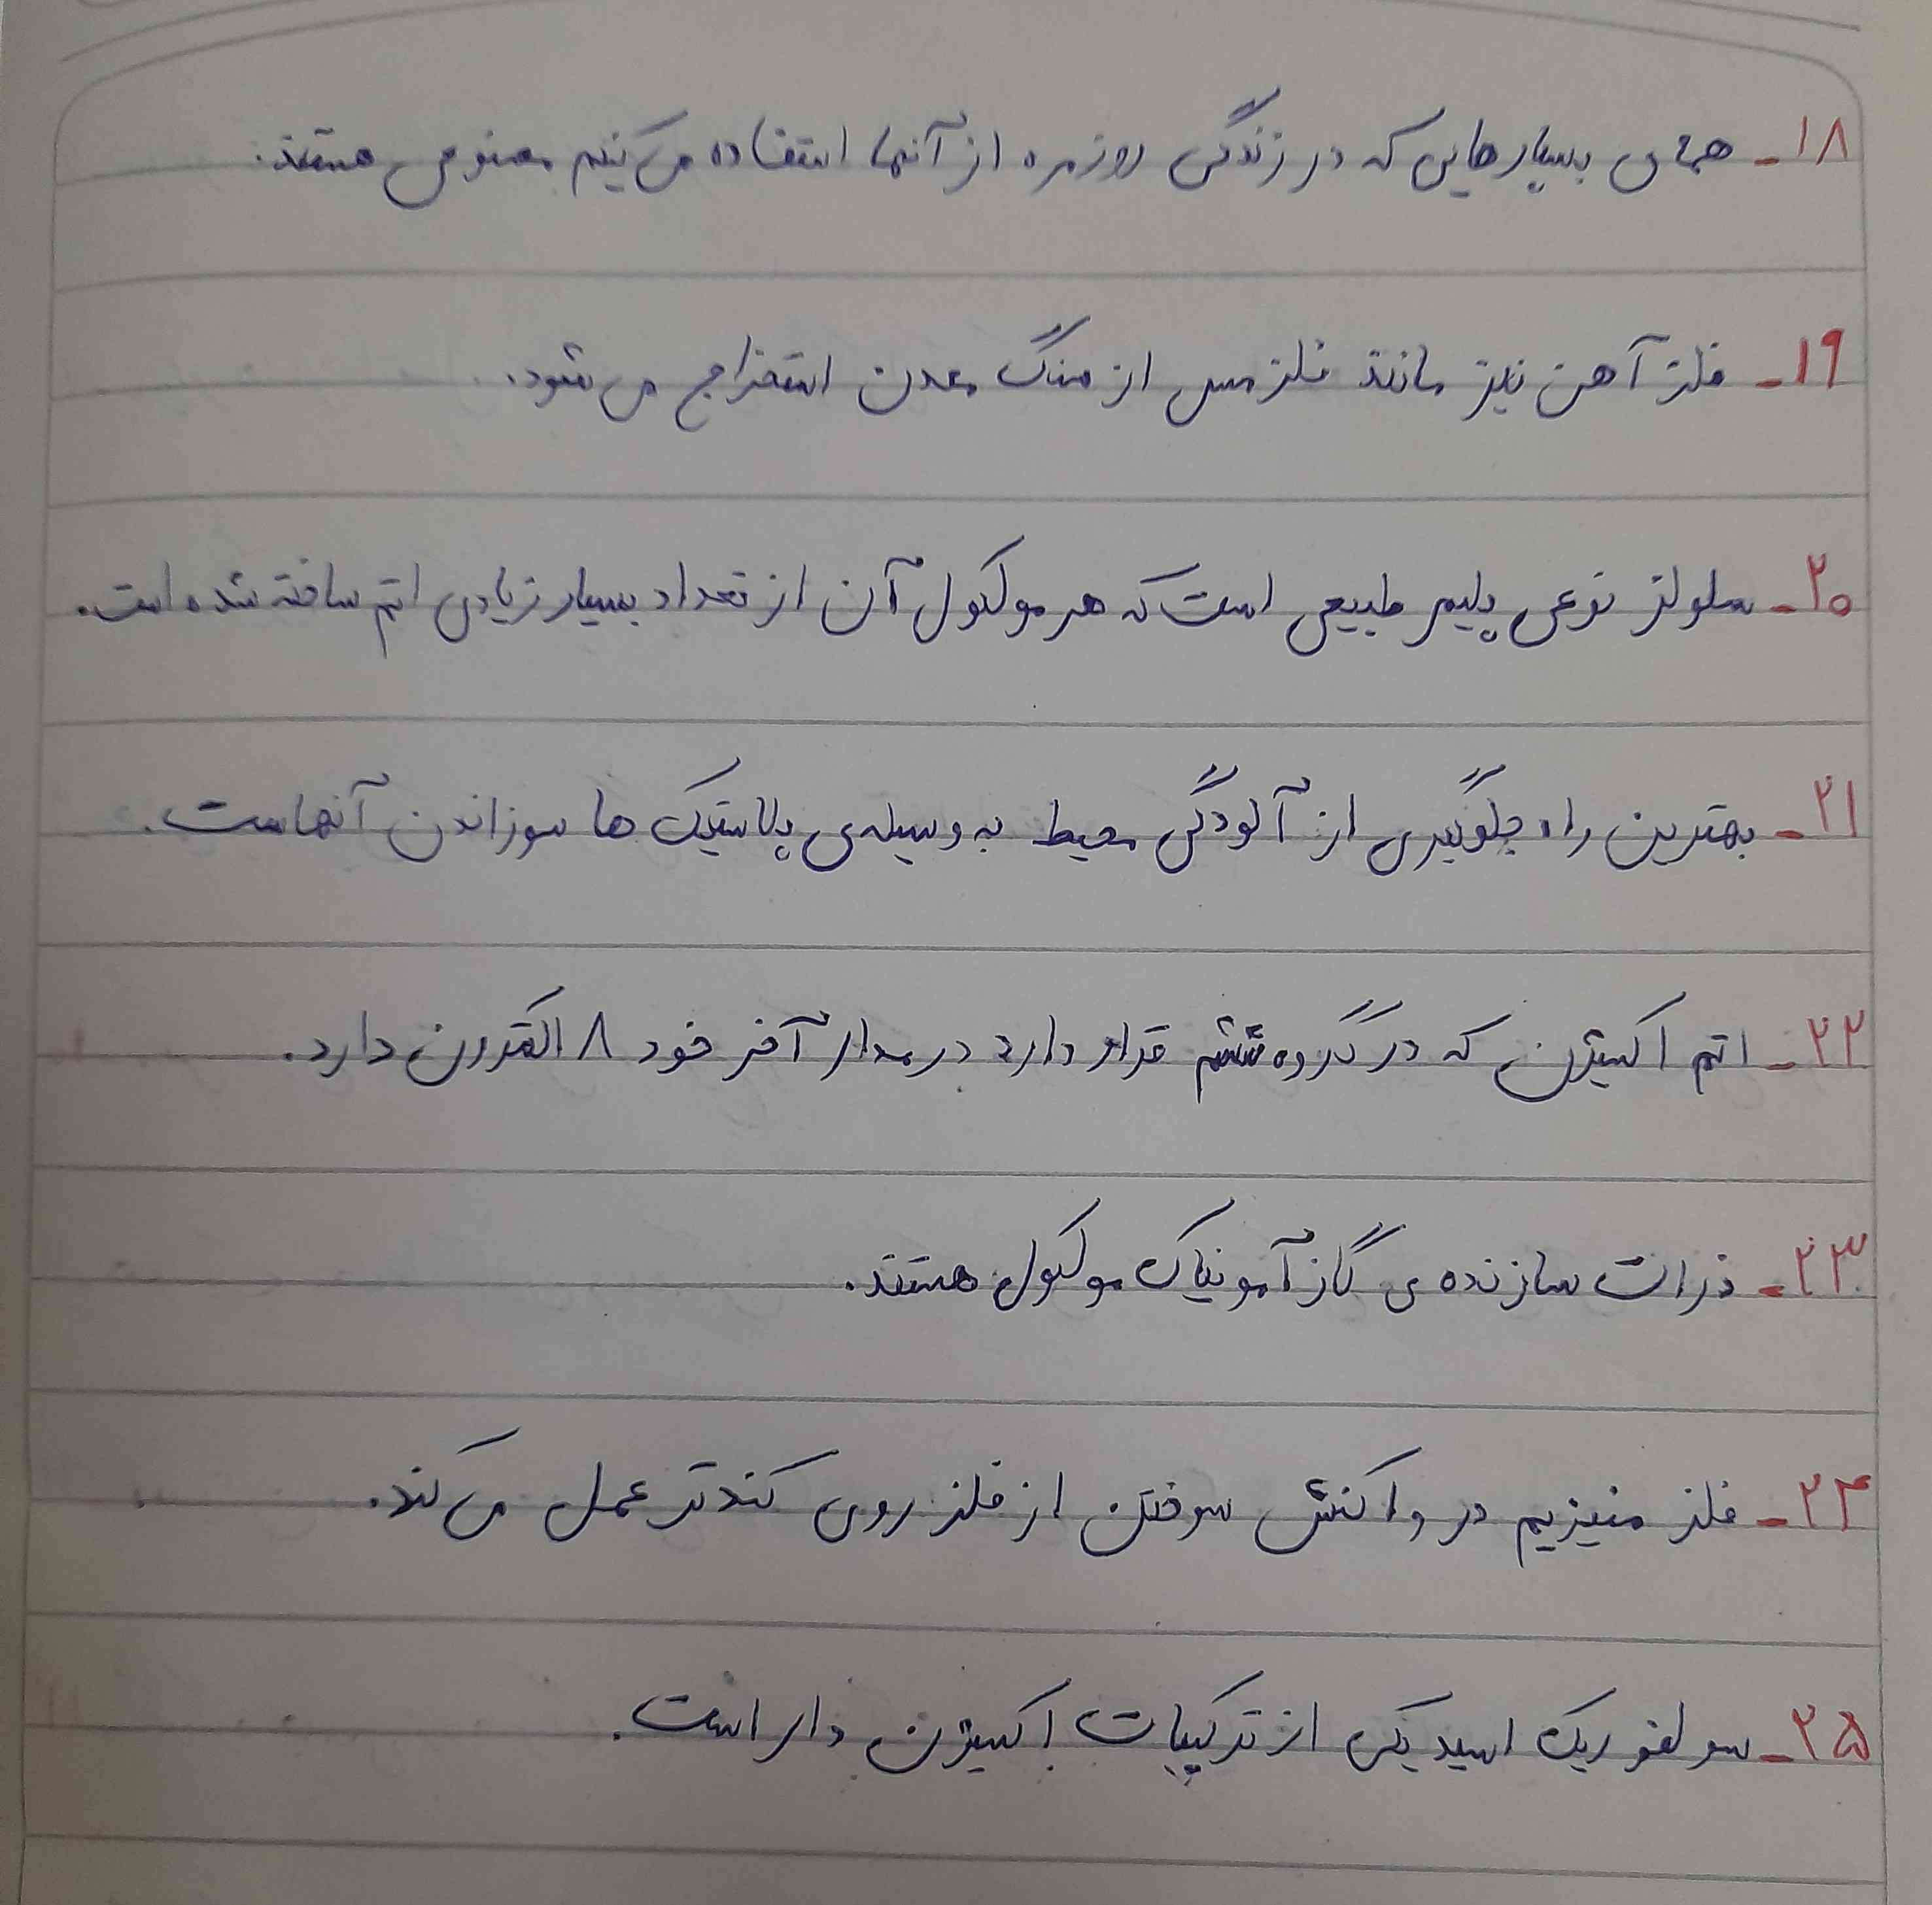 ۱۸- همه‌ی بسپارهایی که در زندگی روزمره از آنها استفاده می‌کنیم مصنوعی هستند.
۱۹- فلز آهن نیز مانند فلز مس از سنگ معدن استخراج می‌شود.
۲۰- سلولز نوعی پلیمر طبیعی است که هر مولکول آن از تعداد بسیار زیادی اتم ساخته شده است.
۲۱- بهترین راه جلوگیری از آلودگی محیط به وسیله‌ی پلاستیک ها سوزاندن آنهاست.
۲۲- اتم اکسیژن که در گروه ششم قرار دارد در مدار آخر خود ۸ الکترون دارد.
۲۳- ذرات سازنده‌ی گاز آمونیاک مولکول هستند.
۲۴- فلز منیزیم در واکنش سوختن از فلز روی کندتر عمل می‌کند.
۲۵- سولفوریک اسید یکی از ترکیبات اکسیژن دار است.